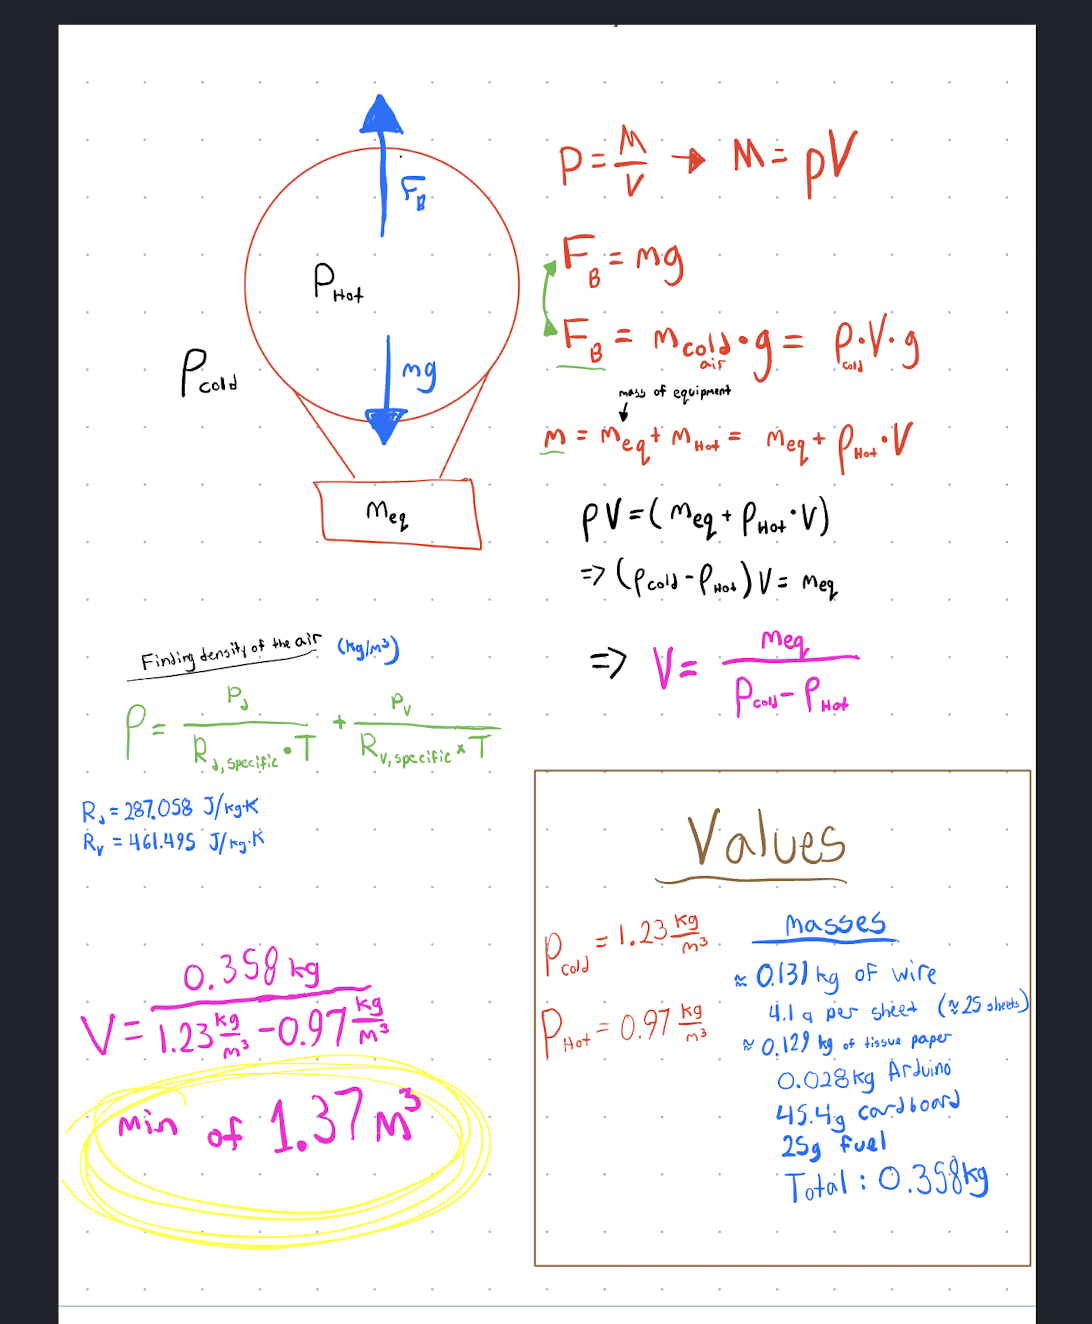 F_B
ρ_Hot
ρ_cold
mg
m_eq
ρ = M/V → M = ρV
F_B = mg
F_B = m_cold air · g = ρ_cold · V · g
mass of equipment
m = m_eq + m_Hot = m_eq + ρ_Hot · V
ρV = (m_eq + ρ_Hot · V)
=> (ρ_cold - ρ_Hot) V = m_eq
=> V = m_eq / (ρ_cold - ρ_Hot)
Finding density of the air (kg/m³)
ρ = P_d / (R_d,specific · T) + P_v / (R_v,specific × T)
R_d = 287.058 J/kg·K
R_v = 461.495 J/kg·K
V = 0.358 kg / (1.23 kg/m³ - 0.97 kg/m³)
min of 1.37 m³
Values
ρ_cold = 1.23 kg/m³
ρ_Hot = 0.97 kg/m³
masses
≈ 0.131 kg of wire
4.1 g per sheet (≈ 25 sheets)
≈ 0.129 kg of tissue paper
0.028 kg Arduino
45.4g cardboard
25g fuel
Total : 0.358 kg